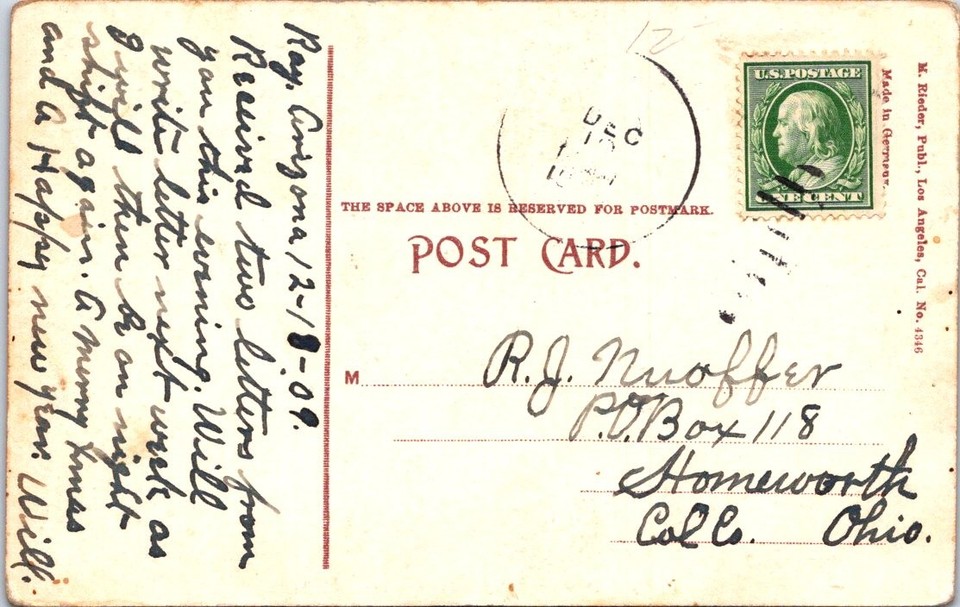 Ray, Arizona 12-18-09.
Received two letters from
you this evening. Will
write letter next week as
I will then be on night
shift again. A merry Xmas
and A Happy new year. Will.
12
DEC
U.S. POSTAGE
ONE CENT
THE SPACE ABOVE IS RESERVED FOR POSTMARK.
POST CARD.
M
R. J. Nuoffer
P.O. Box 118
Homeworth
Col Co. Ohio.
Made in Germany.
M. Rieder, Publ., Los Angeles, Cal. No. 4346